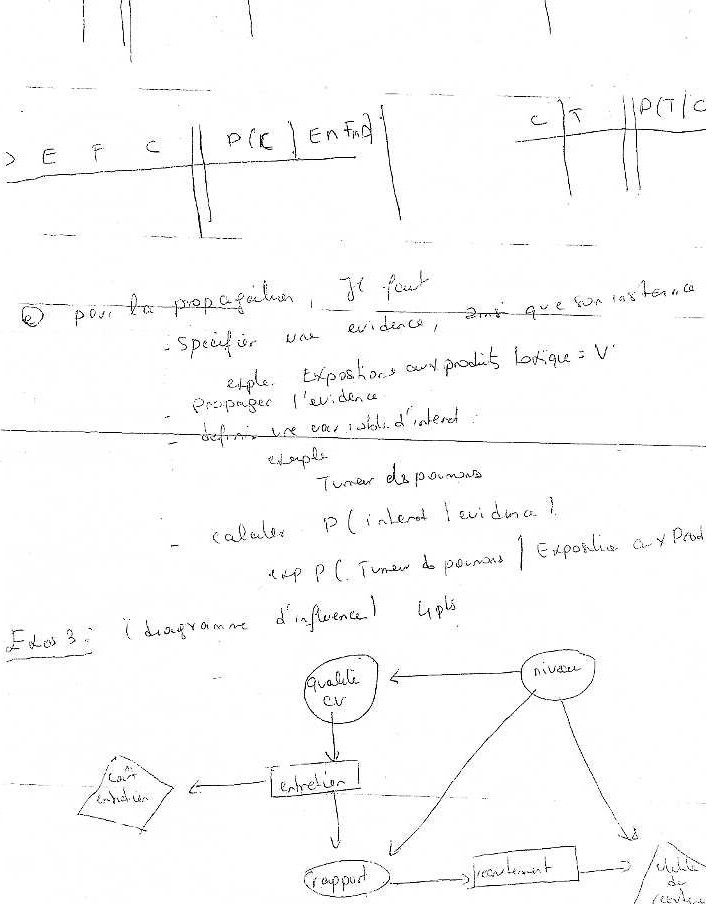 E F C P(C | E ∩ F ∩ A)
C T P(T/C
e) pour la propagation, Il faut
- Spécifier une evidence, ainsi que son instance
exple. Expositions aux produits toxique = V
- Propager l'evidence
- définir une variable d'interet :
exemple
Tumeur des poumons
- calculer P(interet | evidence).
exp P(Tumeur de poumons | Exposition aux Prod
Exo 3: (diagramme d'influence) 4pts
qualité niveau
CV
Coût entretien
entretien
rapport recrutement
de